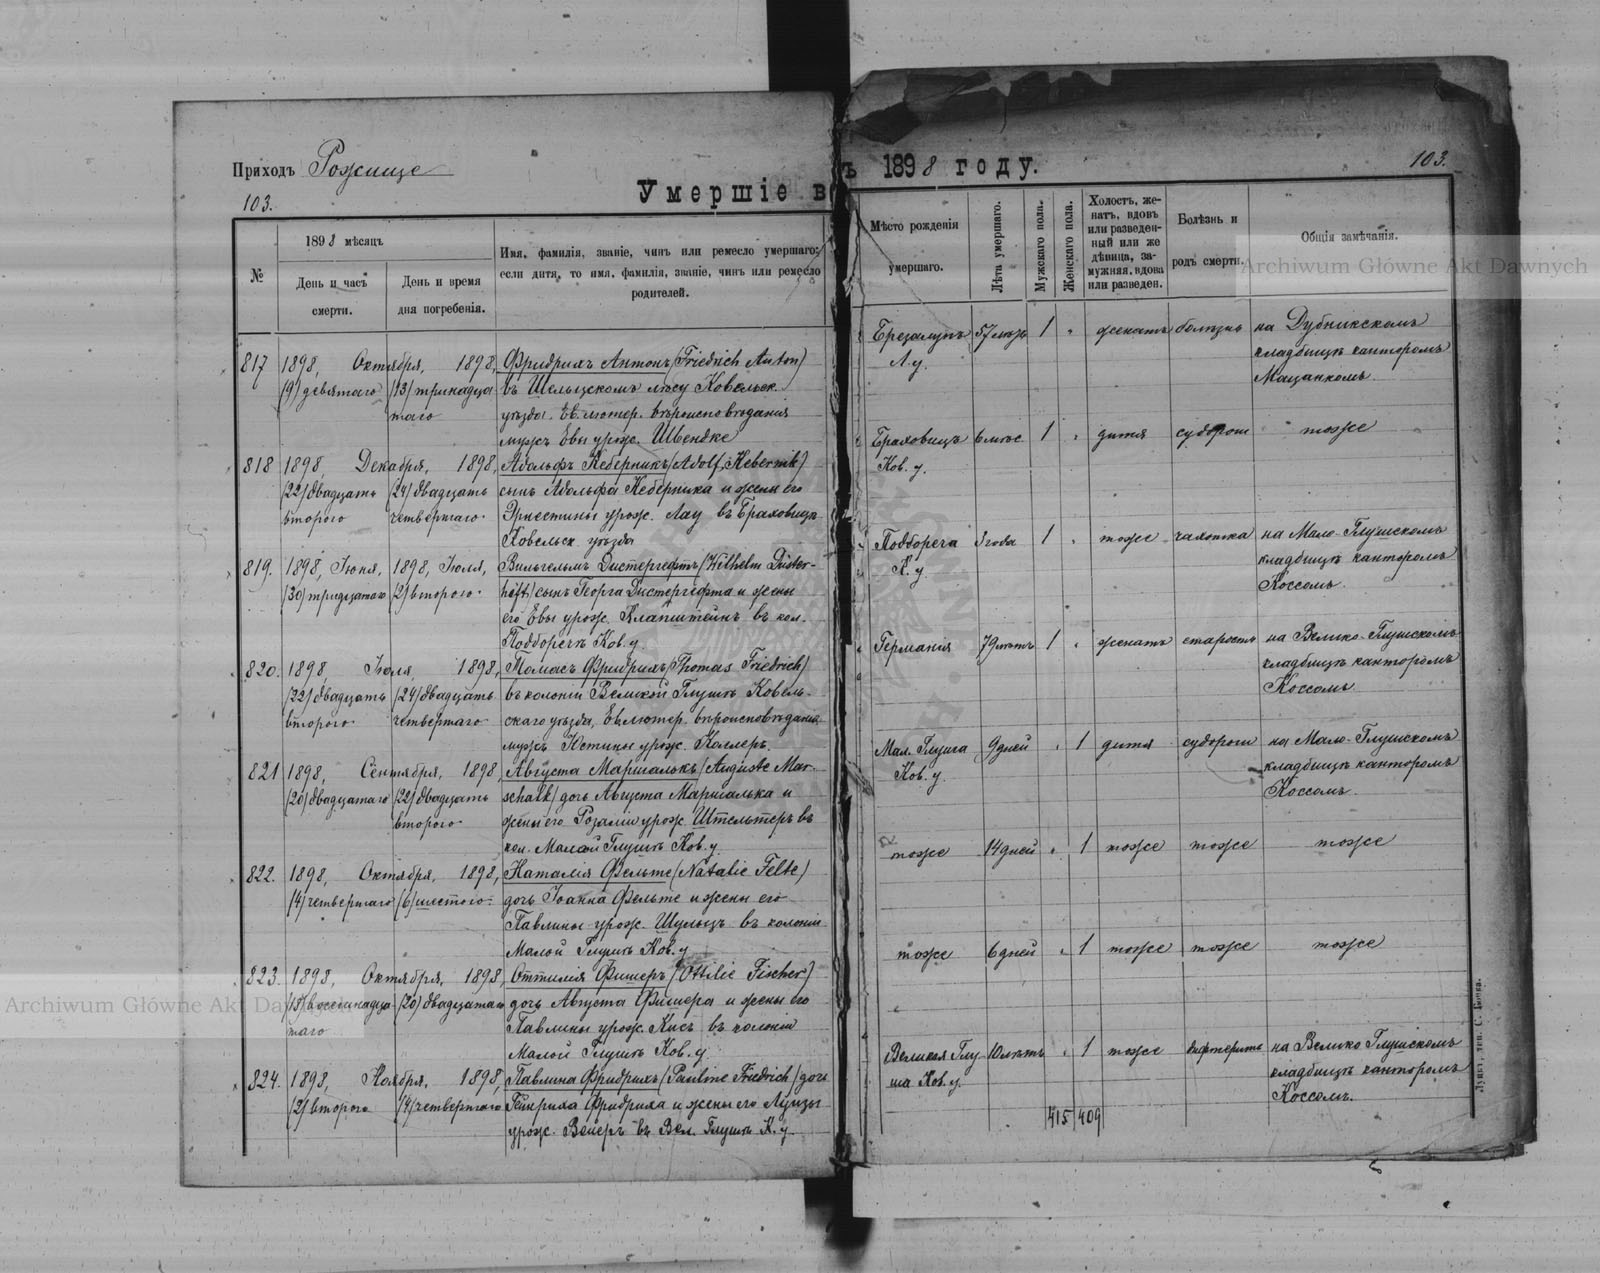 Приходъ Рожище
103.
Умершіе въ 1898 году.
103.
№
1898 мѣсяцъ
День и часъ
смерти.
День и время
дня погребенія.
Имя, фамилія, званіе, чинъ или ремесло умершаго;
если дитя, то имя, фамилія, званіе, чинъ или ремесло
родителей.
Мѣсто рожденія
умершаго.
Лѣта умершаго.
Мужскаго пола.
Женскаго пола.
Холостъ, же-
натъ, вдовъ
или разведен-
ный или же
дѣвица, за-
мужняя, вдова
или разведен.
Болѣзнь и
родъ смерти.
Общія замѣчанія.
Archiwum Główne Akt Dawnych
817 1898, Октября, 1898, Фридрихъ Антонъ (Friedrich Anton)
(9) девятаго (13) тринадца въ лѣсу Ковельск.
таго уѣзда. Ев. лютер. вѣроисповѣданія
мужъ Евы урож. Швендке
57 лѣтъ 1 женатъ болѣзнь на Дубникскомъ
Л. у. кладбищѣ канторомъ
818 1898, Декабря, 1898, Адольфъ Кеберникъ (Adolf Kebernik)
(22) двадцать (24) двадцать сынъ Адольфа Кеберника и жены его
второго четвертаго Эрнестины урож. Лау въ Браховицѣ
Ковельск уѣзда
Браховицъ 6 мѣс 1 дитя судорош тоже
Ков. у.
819. 1898, Іюня, 1898, Іюля, Вильгельмъ Дистергефтъ (Wilhelm Düster-
(30) тридцатаго (2) второго höft) сынъ Георга Дистергефта и жены
его Евы урож. Клапштейнъ въ кол.
Подборечѣ Ков. у.
Подбореча 3 года 1 тоже чахотка на Мало-Глушскомъ
К. у. кладбищѣ канторомъ
Коссомъ.
820. 1898, Іюля, 1898, Томасъ Фридрихъ (Thomas Friedrich)
(22) двадцать (24) двадцать въ колоніи Великой Глушѣ Ковель-
второго четвертаго скаго уѣзда, Ев. лютер. вѣроисповѣданія
мужъ Юстины урож. Келлеръ.
Германія 79 лѣтъ 1 женатъ старость на Велико-Глушскомъ
кладбищѣ канторомъ
Коссомъ
821 1898, Сентября, 1898, Августа Маршалькъ (Auguste Mar-
(20) двадцатаго (22) двадцать schalk) дочь Августа Маршалька и
второго жены его Розаліи урож. Штельтеръ въ
кол. Малой Глушѣ Ков. у.
Мал. Глуша 9 дней 1 дитя судороги на Мало-Глушскомъ
Ков. у. кладбищѣ канторомъ
Коссомъ.
822. 1898, Октября, 1898, Наталія Фельте (Natalie Felte)
(4) четвертаго (6) шестого дочь Іоанна Фельте и жены его
Павлины урож. Шульцъ въ колоніи
Малой Глушѣ Ков. у
тоже 14 дней 1 тоже тоже тоже
823. 1898, Октября, 1898, Оттилія Фишеръ (Ottilie Fischer)
(18) восемнадца (20) двадцатаго дочь Августа Фишера и жены его
таго Павлины урож. Кисъ въ колоніи
Малой Глушѣ Ков. у
тоже 6 дней 1 тоже тоже тоже
824. 1898, Ноября, 1898, Павлина Фридрихъ (Pauline Friedrich) дочь
(2) второго (4) четвертаго Генриха Фридриха и жены его Луизы
урож. Вейеръ въ Вел. Глушѣ К. у
Великая Глу 10 лѣтъ 1 тоже дифтеритъ на Велико Глушскомъ
ша Ков. у. кладбищѣ канторомъ
Коссомъ.
415 409
Archiwum Główne Akt Dawnych